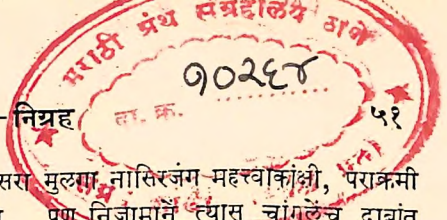 मराठी ग्रंथ संग्रहालय ठाणे
१०२६४
ता. क्र.
-निग्रह ५१
सरा मुलगा नासिरजंग महत्त्वाकांक्षी, पराक्रमी
पण निजामानें त्यास चांगलेच दाबांत